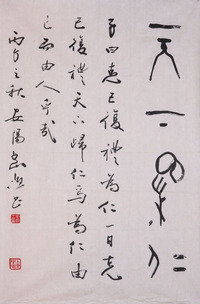 天下归仁
子曰克己復禮為仁一日克
己復禮天下歸仁焉為仁由
己而由人乎哉
丙子之秋